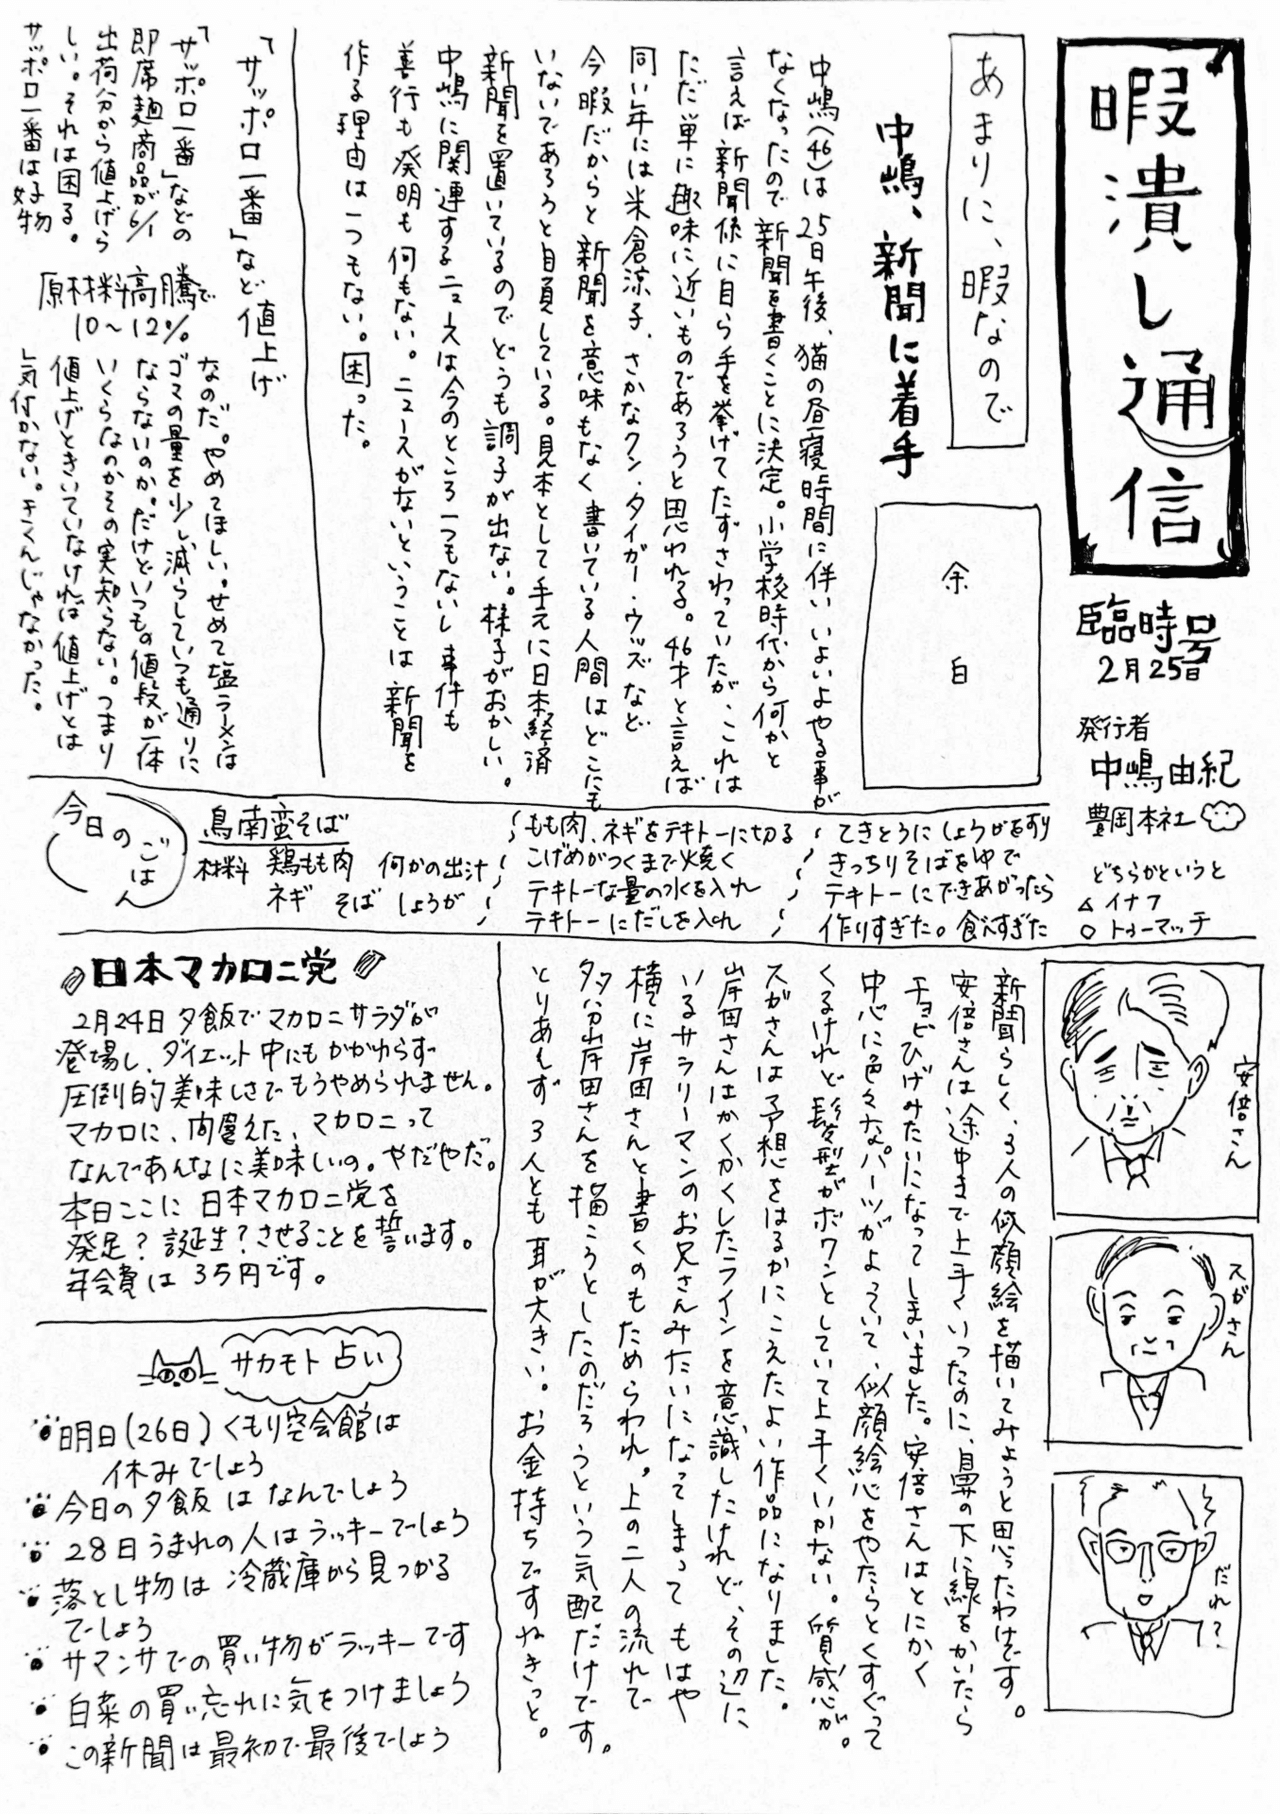 暇潰し通信
臨時号
2月25日
発行者
中嶋由紀
豊岡本社
どちらかというと
△ イナフ
○ トゥーマッチ
あまりに、暇なので
中嶋、新聞に着手
余白
中嶋(46)は25日午後、猫の昼寝時間に伴いいよいよやる事が
なくなったので新聞を書くことに決定。小学校時代から何かと
言えば新聞係に自ら手を挙げてたずさわっていたが、これは
ただ単に趣味に近いものであろうと思われる。46才と言えば
同い年には米倉涼子、さかなクン、タイガー・ウッズなど
今暇だからと新聞を意味もなく書いている人間はどこにも
いないであろうと自負している。見本として手元に日本経済
新聞を置いているのでどうも調子が出ない。様子がおかしい。
中嶋に関連するニュースは今のところ一つもないし事件も
善行も発明も何もない。ニュースがないということは新聞を
作る理由は一つもない。困った。
「サッポロ一番」など値上げ
原材料高騰で
10〜12%
「サッポロ一番」などの
即席麺商品が6/1
出荷分から値上げら
しい。それは困る。
サッポロ一番は好物
なのだ。やめてほしい。せめて塩ラーメンは
ゴマの量を少し減らしていつも通りに
ならないのか。だけどいつもの値段が一体
いくらなのかその実知らない。つまり
値上げときいていなければ値上げとは
気付かない。きくんじゃなかった。
今日のごはん
鳥南蛮そば
材料 鶏もも肉 何かの出汁
ネギ そば しょうが
もも肉、ネギをテキトーに切る
こげめがつくまで焼く
テキトーな量の水を入れ
テキトーにだしを入れ
てきとうにしょうがをすり
きっちりそばをゆで
テキトーにできあがったら
作りすぎた。食べすぎた
安倍さん
スガさん
だれ?
新聞らしく、3人の似顔絵を描いてみようと思ったわけです。
安倍さんは途中まで上手くいったのに、鼻の下に線をかいたら
チョビひげみたいになってしまいました。安倍さんはとにかく
中心に色々なパーツがよっていて、似顔絵心をやたらとくすぐって
くるけれど髪型がボワンとしていて上手くいかない。質感が。
スガさんは予想をはるかにこえたよい作品になりました。
岸田さんはかくかくしたラインを意識したけれど、その辺に
いるサラリーマンのお兄さんみたいになってしまってもはや
横に岸田さんと書くのもためらわれ。上の二人の流れで
多分岸田さんを描こうとしたのだろうという気配だけです。
とりあえず3人とも耳が大きい。お金持ちですねきっと。
日本マカロニ党
2月24日夕飯でマカロニサラダが
登場し、ダイエット中にもかかわらず
圧倒的美味しさでもうやめられません。
マカロに、間違えた、マカロニって
なんであんなに美味しいの。やだやだ。
本日ここに日本マカロニ党を
発足?誕生?させることを誓います。
年会費は35円です。
サカモト占い
明日(26日)くもり空会館は
休みでしょう
今日の夕飯はなんでしょう
28日うまれの人はラッキーでしょう
落とし物は冷蔵庫から見つかる
でしょう
サマンサでの買い物がラッキーです
白菜の買い忘れに気をつけましょう
この新聞は最初で最後でしょう